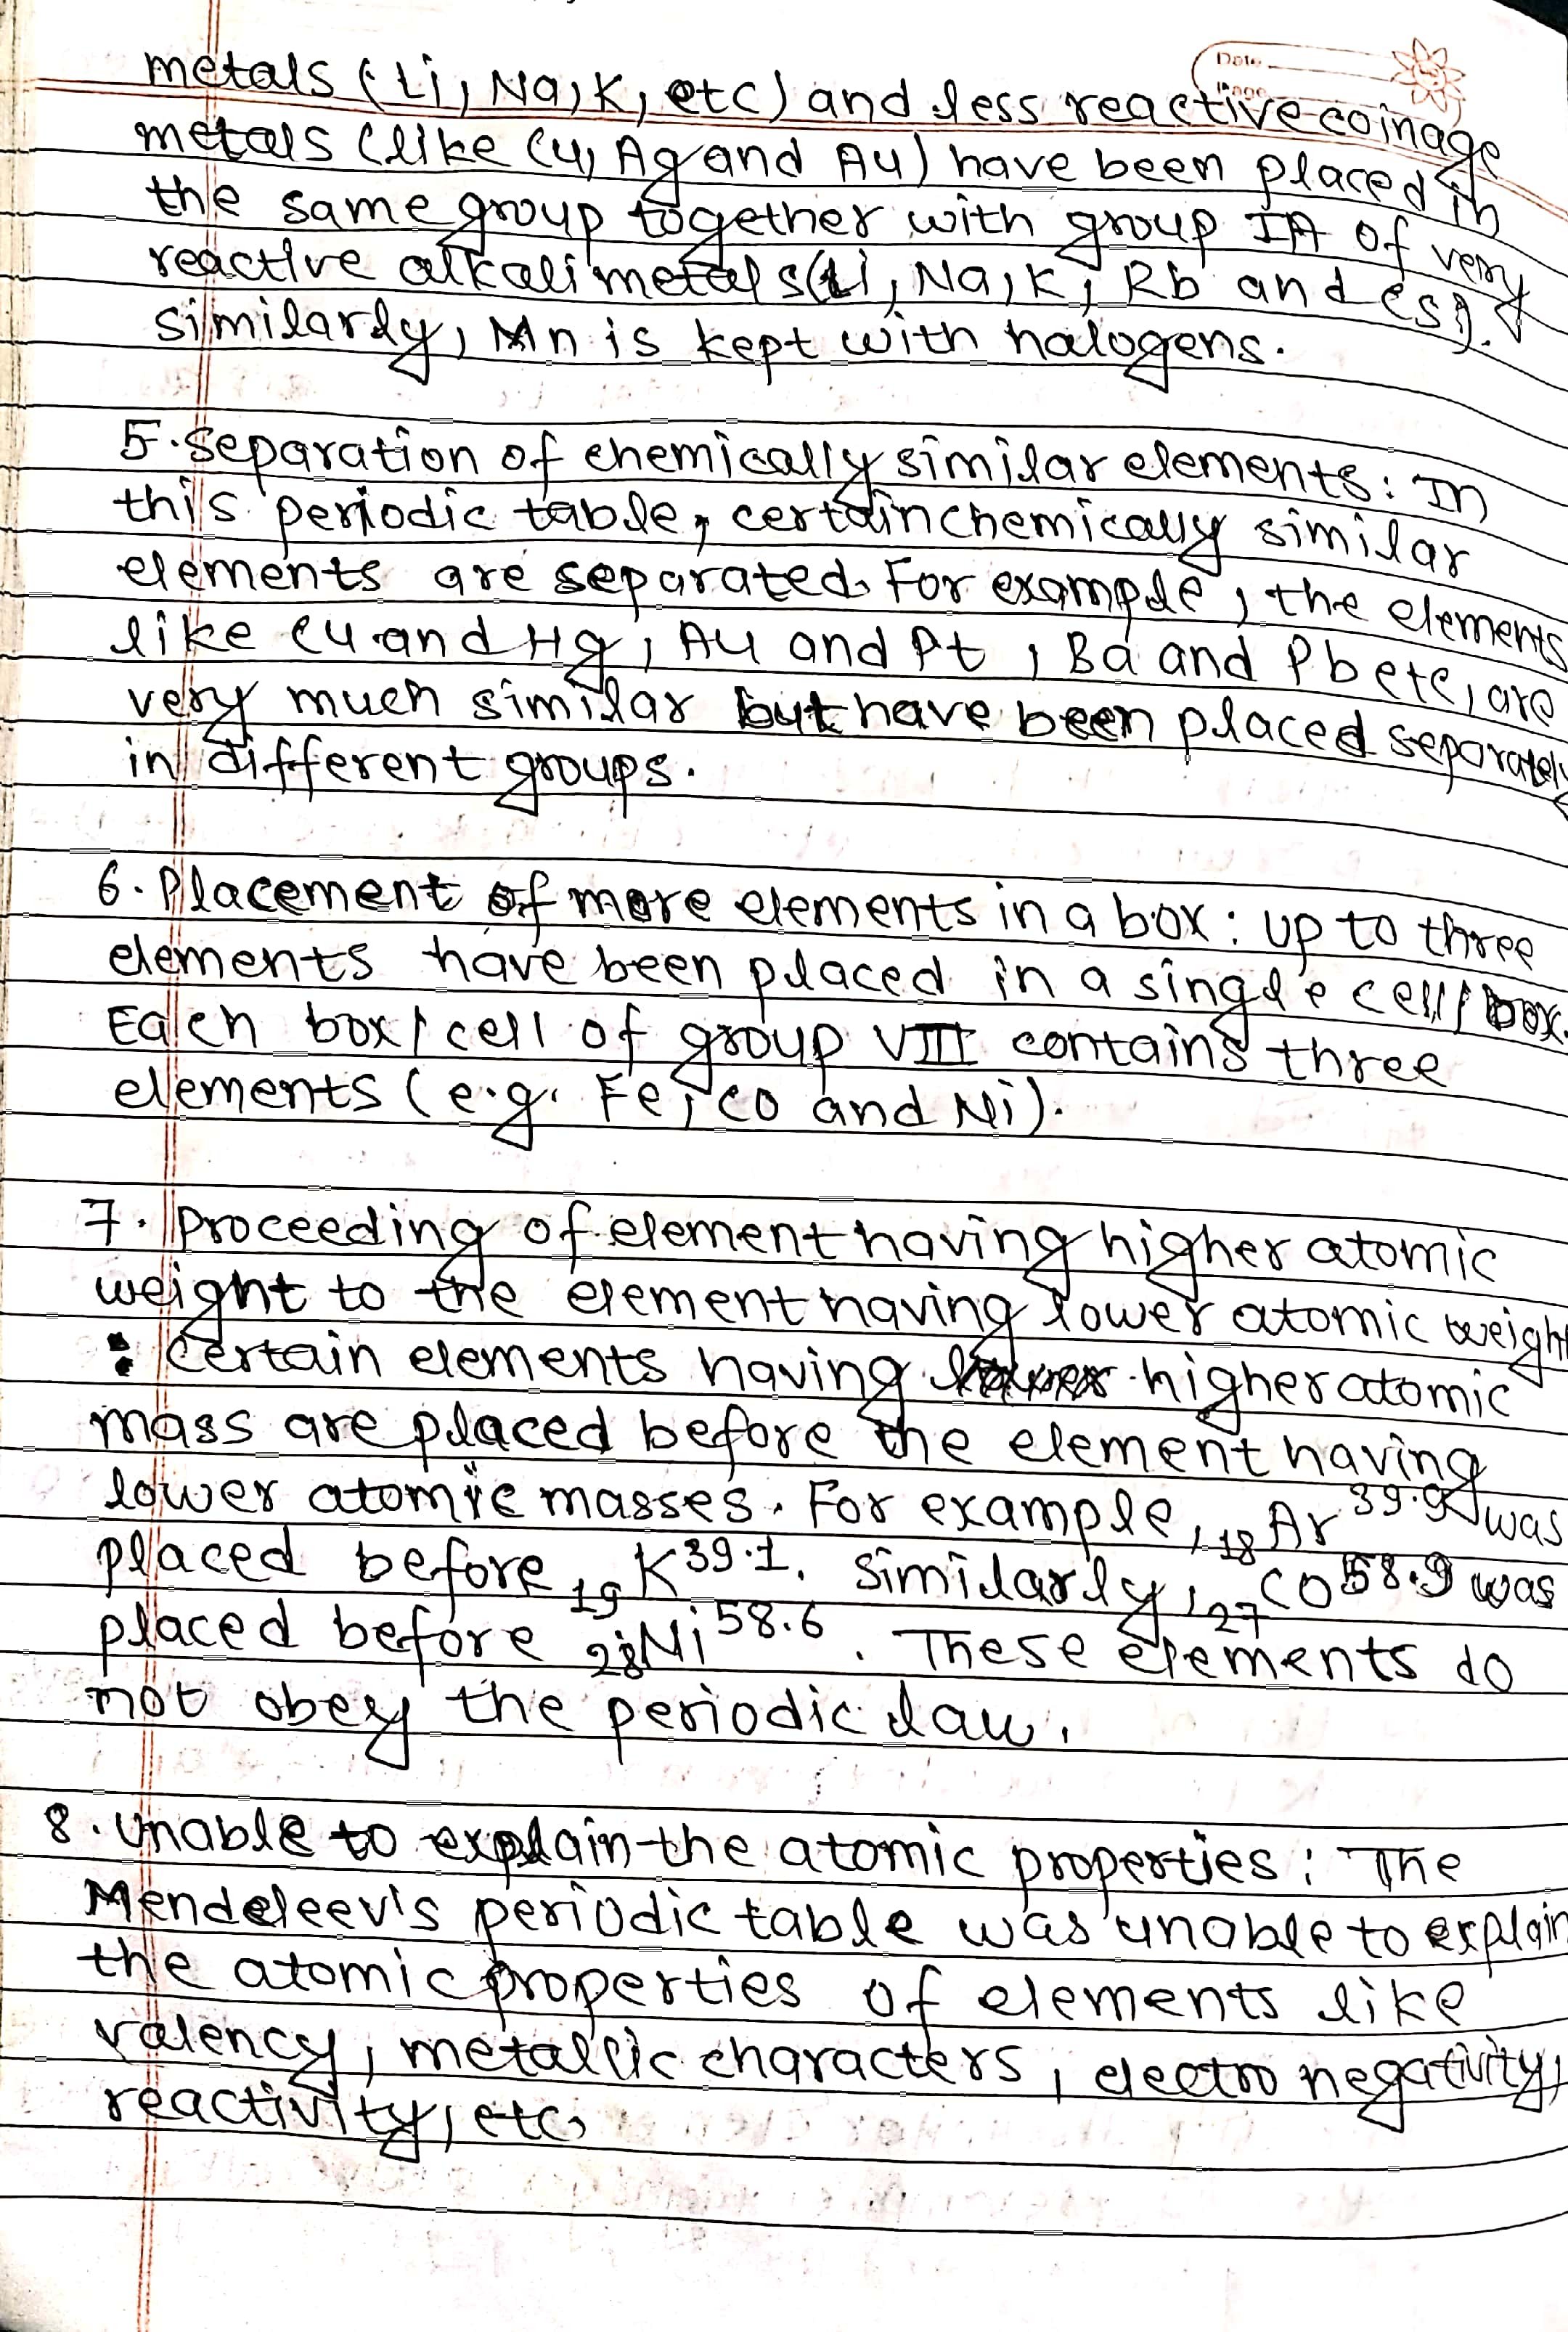 Date
Page
metals (Li, Na, K, etc) and less reactive coinage
metals (like Cu, Ag and Au) have been placed in
the same group together with group IA of very
reactive alkali metals (Li, Na, K, Rb and Cs).
similarly, Mn is kept with halogens.
5. Separation of chemically similar elements: In
this periodic table, certain chemically similar
elements are separated. For example, the elements
like Cu and Hg, Au and Pt, Ba and Pb etc, are
very much similar but have been placed separately
in different groups.
6. Placement of more elements in a box: up to three
elements have been placed in a single cell/box.
Each box/cell of group VIII contains three
elements (e.g. Fe, Co and Ni).
7. Proceeding of element having higher atomic
weight to the element having lower atomic weight
: Certain elements having higher atomic
mass are placed before the element having
lower atomic masses. For example, ₁₈Ar³⁹·⁹ was
placed before ₁₉K³⁹·¹. Similarly, ₂₇Co⁵⁸·⁹ was
placed before ₂₈Ni⁵⁸·⁶. These elements do
not obey the periodic law.
8. Unable to explain the atomic properties: The
Mendeleev's periodic table was unable to explain
the atomic properties of elements like
valency, metallic characters, electro negativity,
reactivity, etc